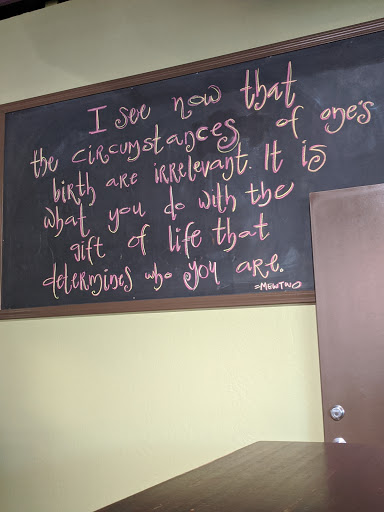 I see now that
the circumstances of one's
birth are irrelevant. It is
what you do with the
gift of life that
determines who you are.
-MEWTWO